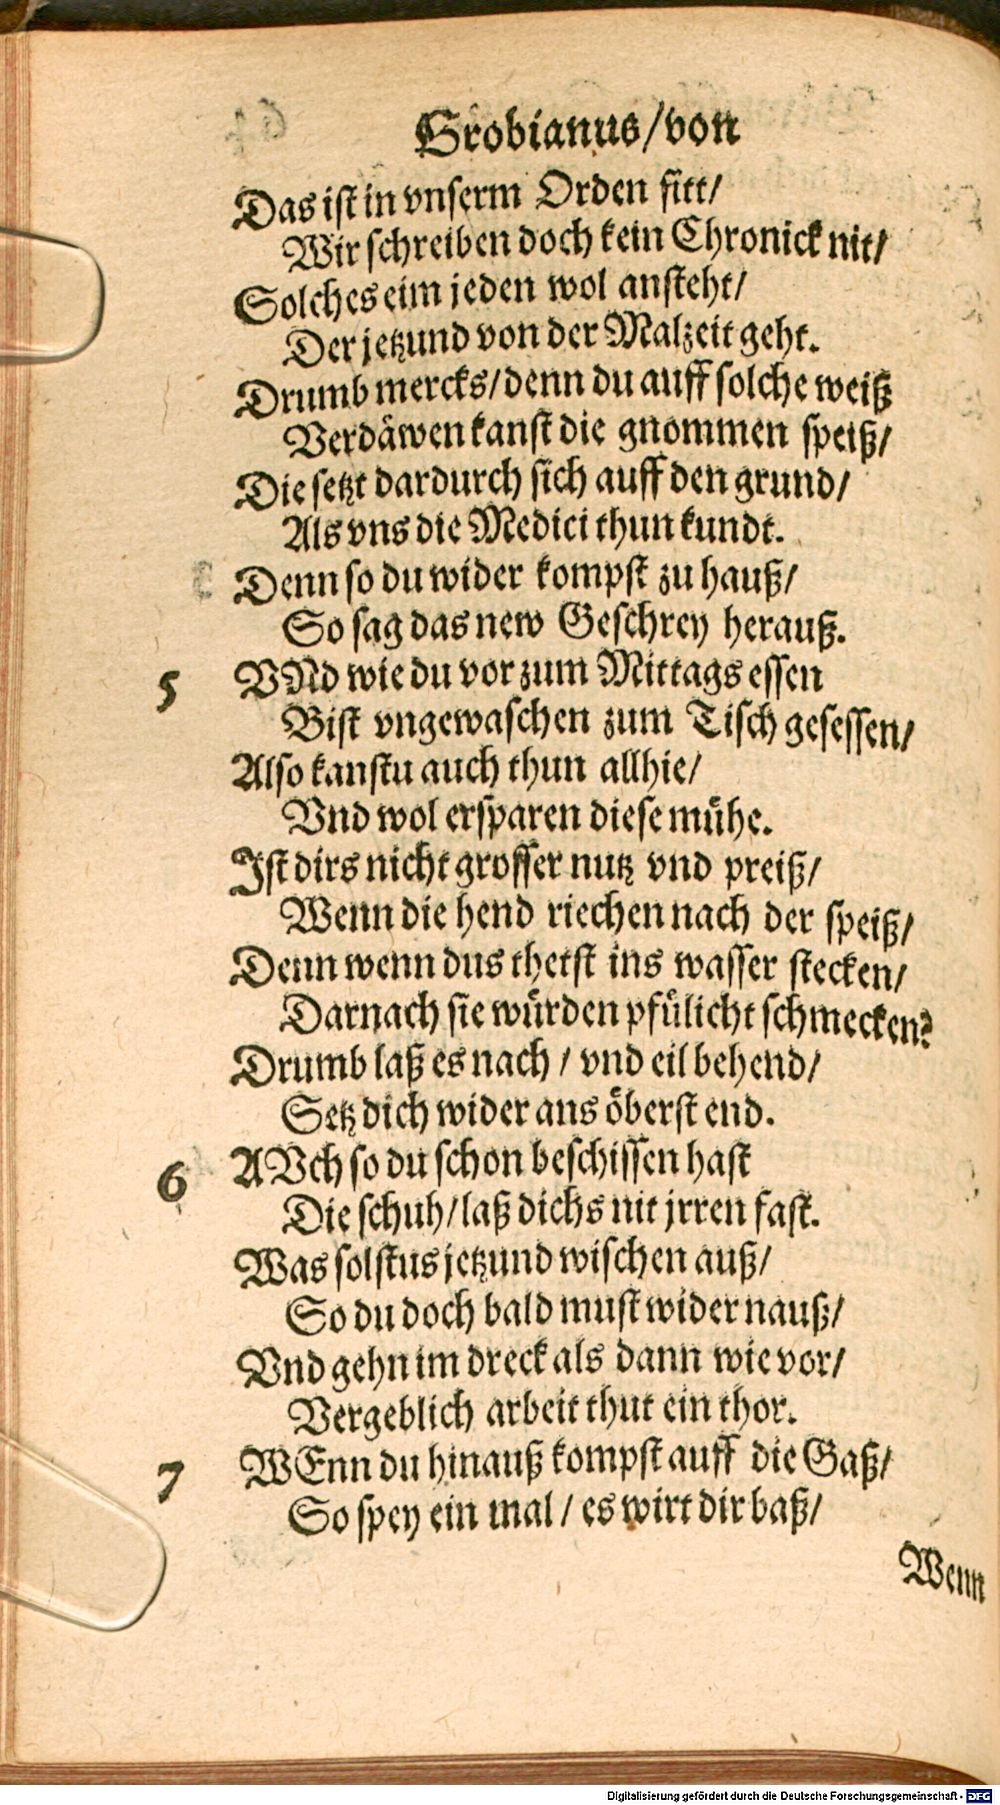 Grobianus/von
Das ist in vnserm Orden sitt/
Wir schreiben doch kein Chronick nit/
Solches eim jeden wol ansteht/
Der jetzund von der Malzeit geht.
Drumb mercks/denn du auff solche weiß
Verdäwen kanst die gnommen speiß/
Die setzt dardurch sich auff den grund/
Als vns die Medici thun kundt.
Denn so du wider kompst zu hauß/
So sag das new Geschrey herauß.
5 VNd wie du vor zum Mittags essen
Bist vngewaschen zum Tisch gesessen/
Also kanstu auch thun allhie/
Vnd wol ersparen diese mühe.
Ist dirs nicht grosser nutz vnd preiß/
Wenn die hend riechen nach der speiß/
Denn wenn dus thetst ins wasser stecken/
Darnach sie würden pfülicht schmecken?
Drumb laß es nach / vnd eil behend/
Setz dich wider ans öberst end.
6 AVch so du schon beschissen hast
Die schuh/laß dichs nit jrren fast.
Was solstus jetzund wischen auß/
So du doch bald must wider nauß/
Vnd gehn im dreck als dann wie vor/
Vergeblich arbeit thut ein thor.
7 WEnn du hinauß kompst auff die Gaß/
So spey ein mal / es wirt dir baß/
Wenn
Digitalisierung gefördert durch die Deutsche Forschungsgemeinschaft - DFG